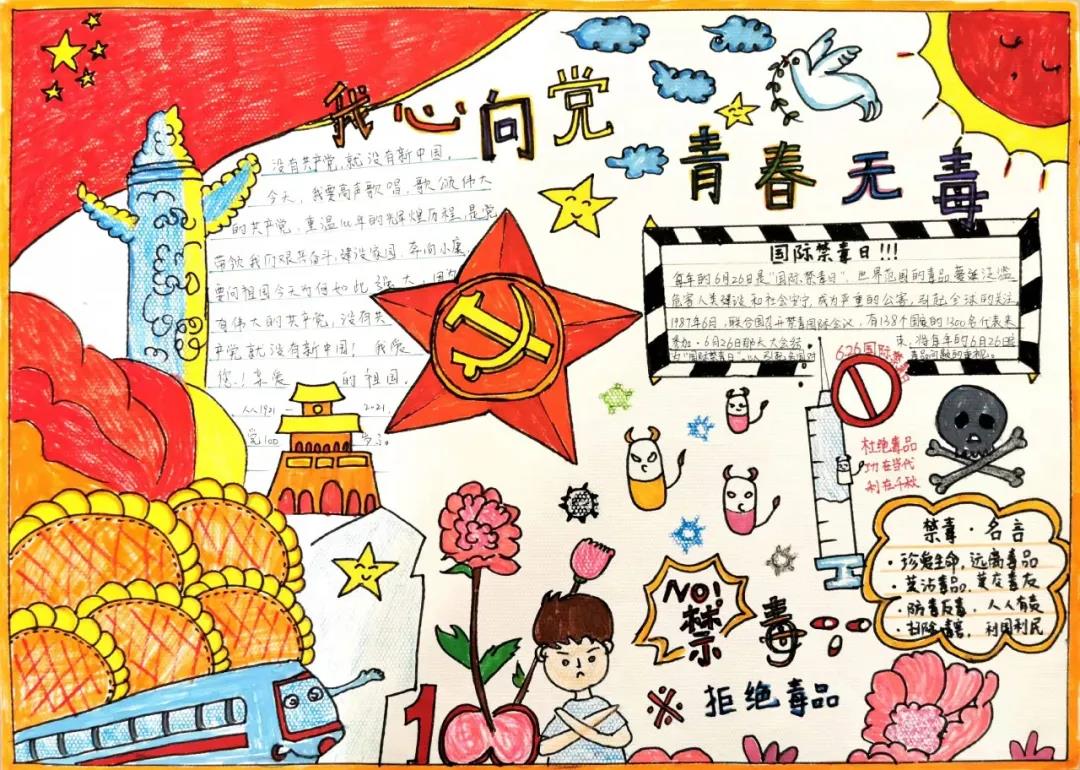 我心向党
没有共产党,就没有新中国。
今天,我要高声歌唱,歌颂伟大
的共产党,重温100年的辉煌历程,是党
带领我们艰苦奋斗,建设家园,奔向小康,
要问祖国今天为何如此强大,因为
有伟大的共产党,没有共
产党就没有新中国! 我爱
您!亲爱 的祖国。
从1921 — 2021,
党100
青春无毒
国际禁毒日!!!
每年的6月26日是"国际禁毒日",世界范围的毒品蔓延泛滥
危害人类健康和社会安宁,成为严重的公害,引起全球的关注
1987年6月,联合国召开禁毒国际会议,有138个国家的1300名代表来
参加。6月26日那天大会结 束,将每年的6月26日
为"国际禁毒日",以引起各国对 毒品问题的重视。
6.26国际禁毒日
杜绝毒品
功在当代
利在千秋
禁毒·名言
·珍爱生命,远离毒品
·莫沾毒品,莫交毒友
·防毒反毒,人人有责
·扫除毒害,利国利民
NO!
禁毒
※拒绝毒品
1